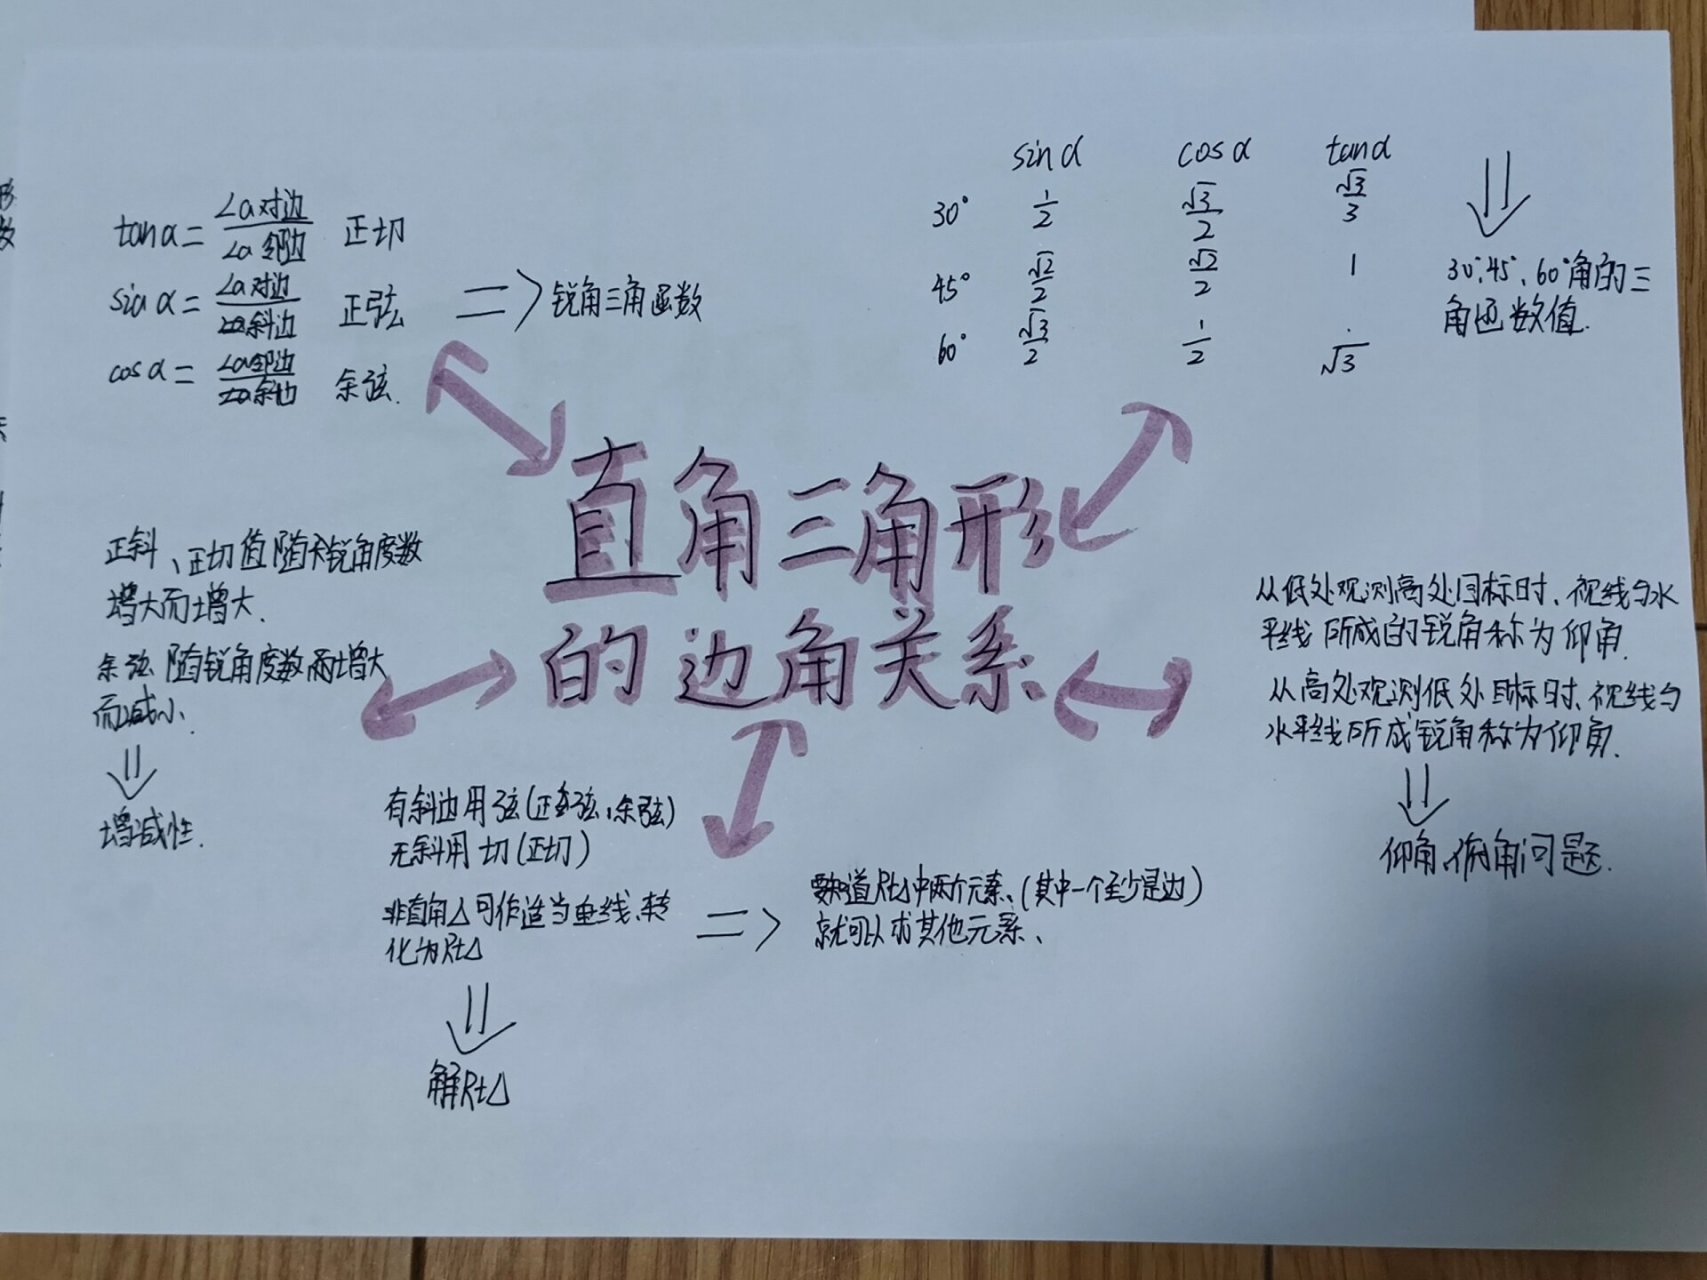 tanα = ∠α对边/∠α邻边 正切
sinα = ∠α对边/斜边 正弦
cosα = ∠α邻边/斜边 余弦.
=> 锐角三角函数
sinα cosα tanα
30° 1/2 √3/2 √3/3
45° √2/2 √2/2 1
60° √3/2 1/2 √3
30°、45°、60°角的三
角函数值.
直角三角形
的边角关系
正斜、正切值随锐角度数
增大而增大.
余弦随锐角度数而增大
而减小、
增减性.
有斜边用弦(正弦,余弦)
无斜用切(正切)
非直角△可作适当垂线、转
化为Rt△
=> 要知道Rt△中两个元素、(其中一个至少是边)
就可以求其他元素、
解Rt△
从低处观测高处目标时、视线与水
平线所成的锐角称为仰角.
从高处观测低处目标时、视线与
水平线所成锐角称为仰角.
仰角、俯角问题.